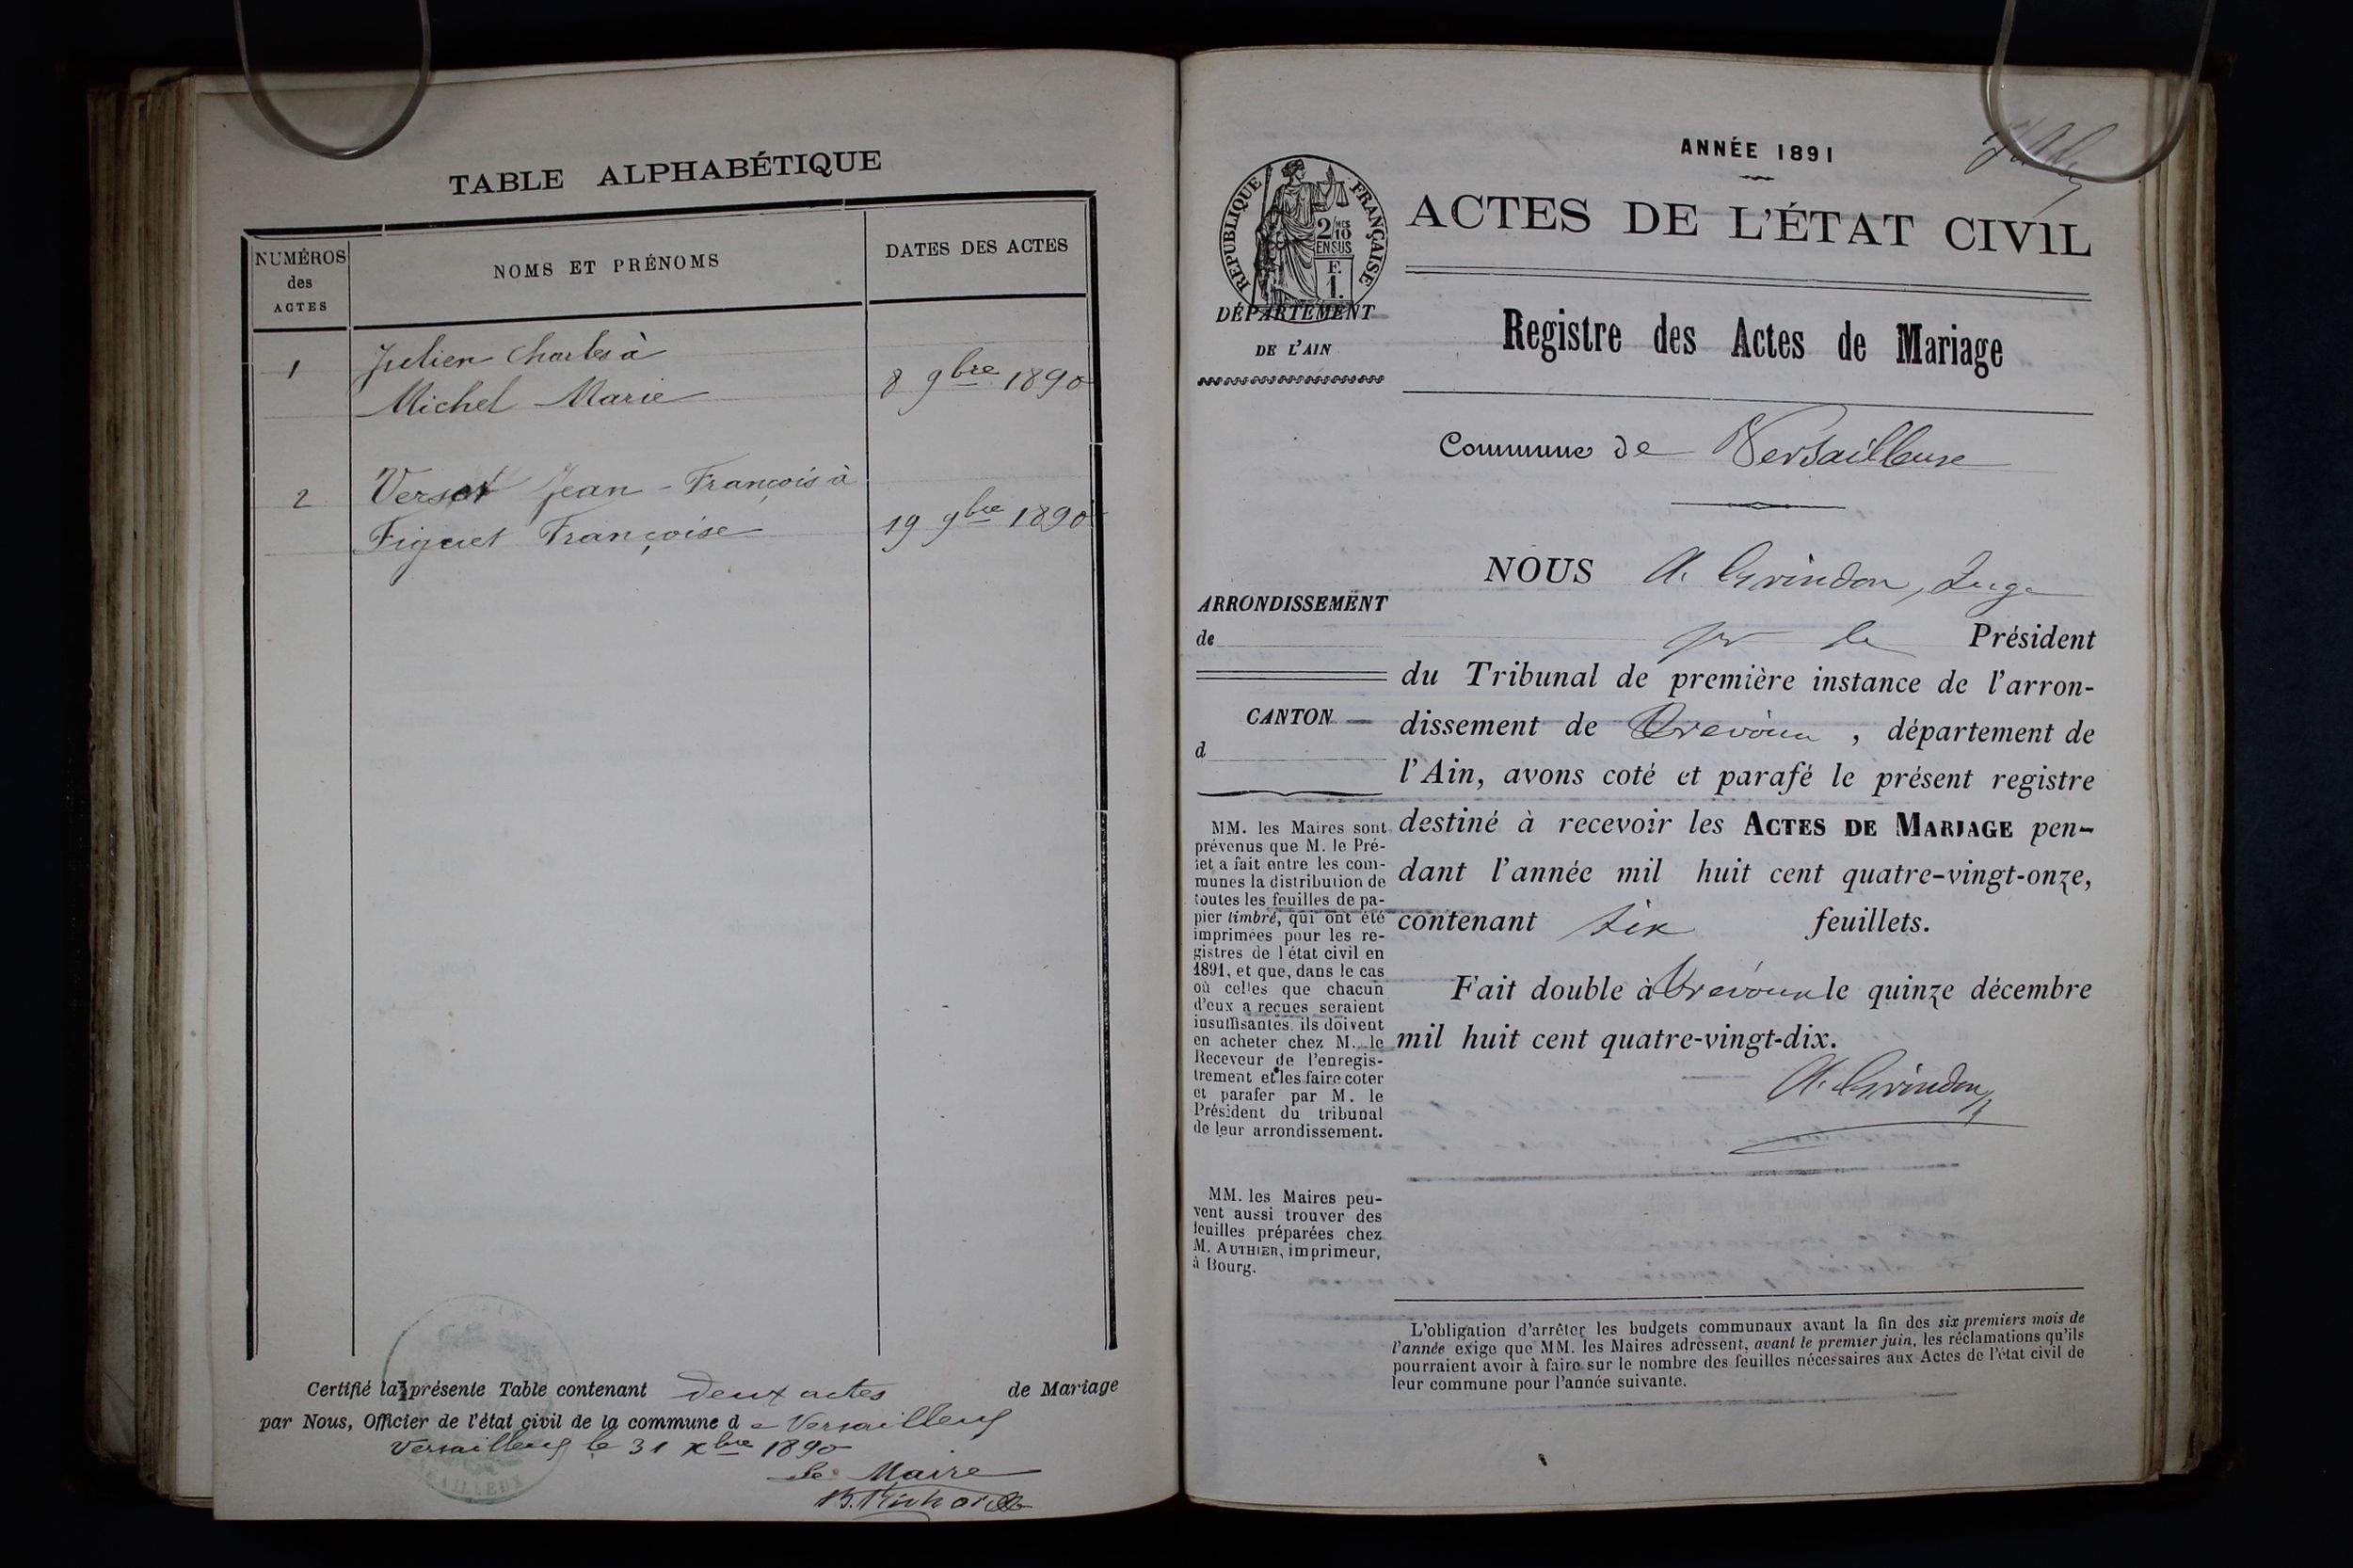 TABLE ALPHABÉTIQUE
NUMÉROS
des
ACTES
NOMS ET PRÉNOMS
DATES DES ACTES
1
Julien Charles à
Michel Marie
8 9bre 1890
2
Verset Jean-François à
Figuet Françoise
19 9bre 1890
Certifié la présente Table contenant deux actes de Mariage
par Nous, Officier de l'état civil de la commune de Versailleux
Versailleux le 31 Xbre 1890
Le Maire
ANNÉE 1891
RÉPUBLIQUE FRANÇAISE
2/10MES
EN SUS
F.
1.
DÉPARTEMENT
DE L'AIN
ACTES DE L'ÉTAT CIVIL
Registre des Actes de Mariage
Commune de Versailleux
ARRONDISSEMENT
de
CANTON
d
MM. les Maires sont
prévenus que M. le Pré-
fet a fait entre les com-
munes la distribution de
toutes les feuilles de pa-
pier timbré, qui ont été
imprimées pour les re-
gistres de l'état civil en
1891, et que, dans le cas
où celles que chacun
d'eux a reçues seraient
insuffisantes, ils doivent
en acheter chez M. le
Receveur de l'enregis-
trement et les faire coter
et parafer par M. le
Président du tribunal
de leur arrondissement.
MM. les Maires peu-
vent aussi trouver des
feuilles préparées chez
M. AUTHIER, imprimeur,
à Bourg.
NOUS A. Grindon, Juge
pr le Président
du Tribunal de première instance de l'arron-
dissement de Trévoux, département de
l'Ain, avons coté et parafé le présent registre
destiné à recevoir les ACTES DE MARIAGE pen-
dant l'année mil huit cent quatre-vingt-onze,
contenant six feuillets.
Fait double à Trévoux le quinze décembre
mil huit cent quatre-vingt-dix.
A. Grindon
L'obligation d'arrêter les budgets communaux avant la fin des six premiers mois de
l'année exige que MM. les Maires adressent, avant le premier juin, les réclamations qu'ils
pourraient avoir à faire sur le nombre des feuilles nécessaires aux Actes de l'état civil de
leur commune pour l'année suivante.